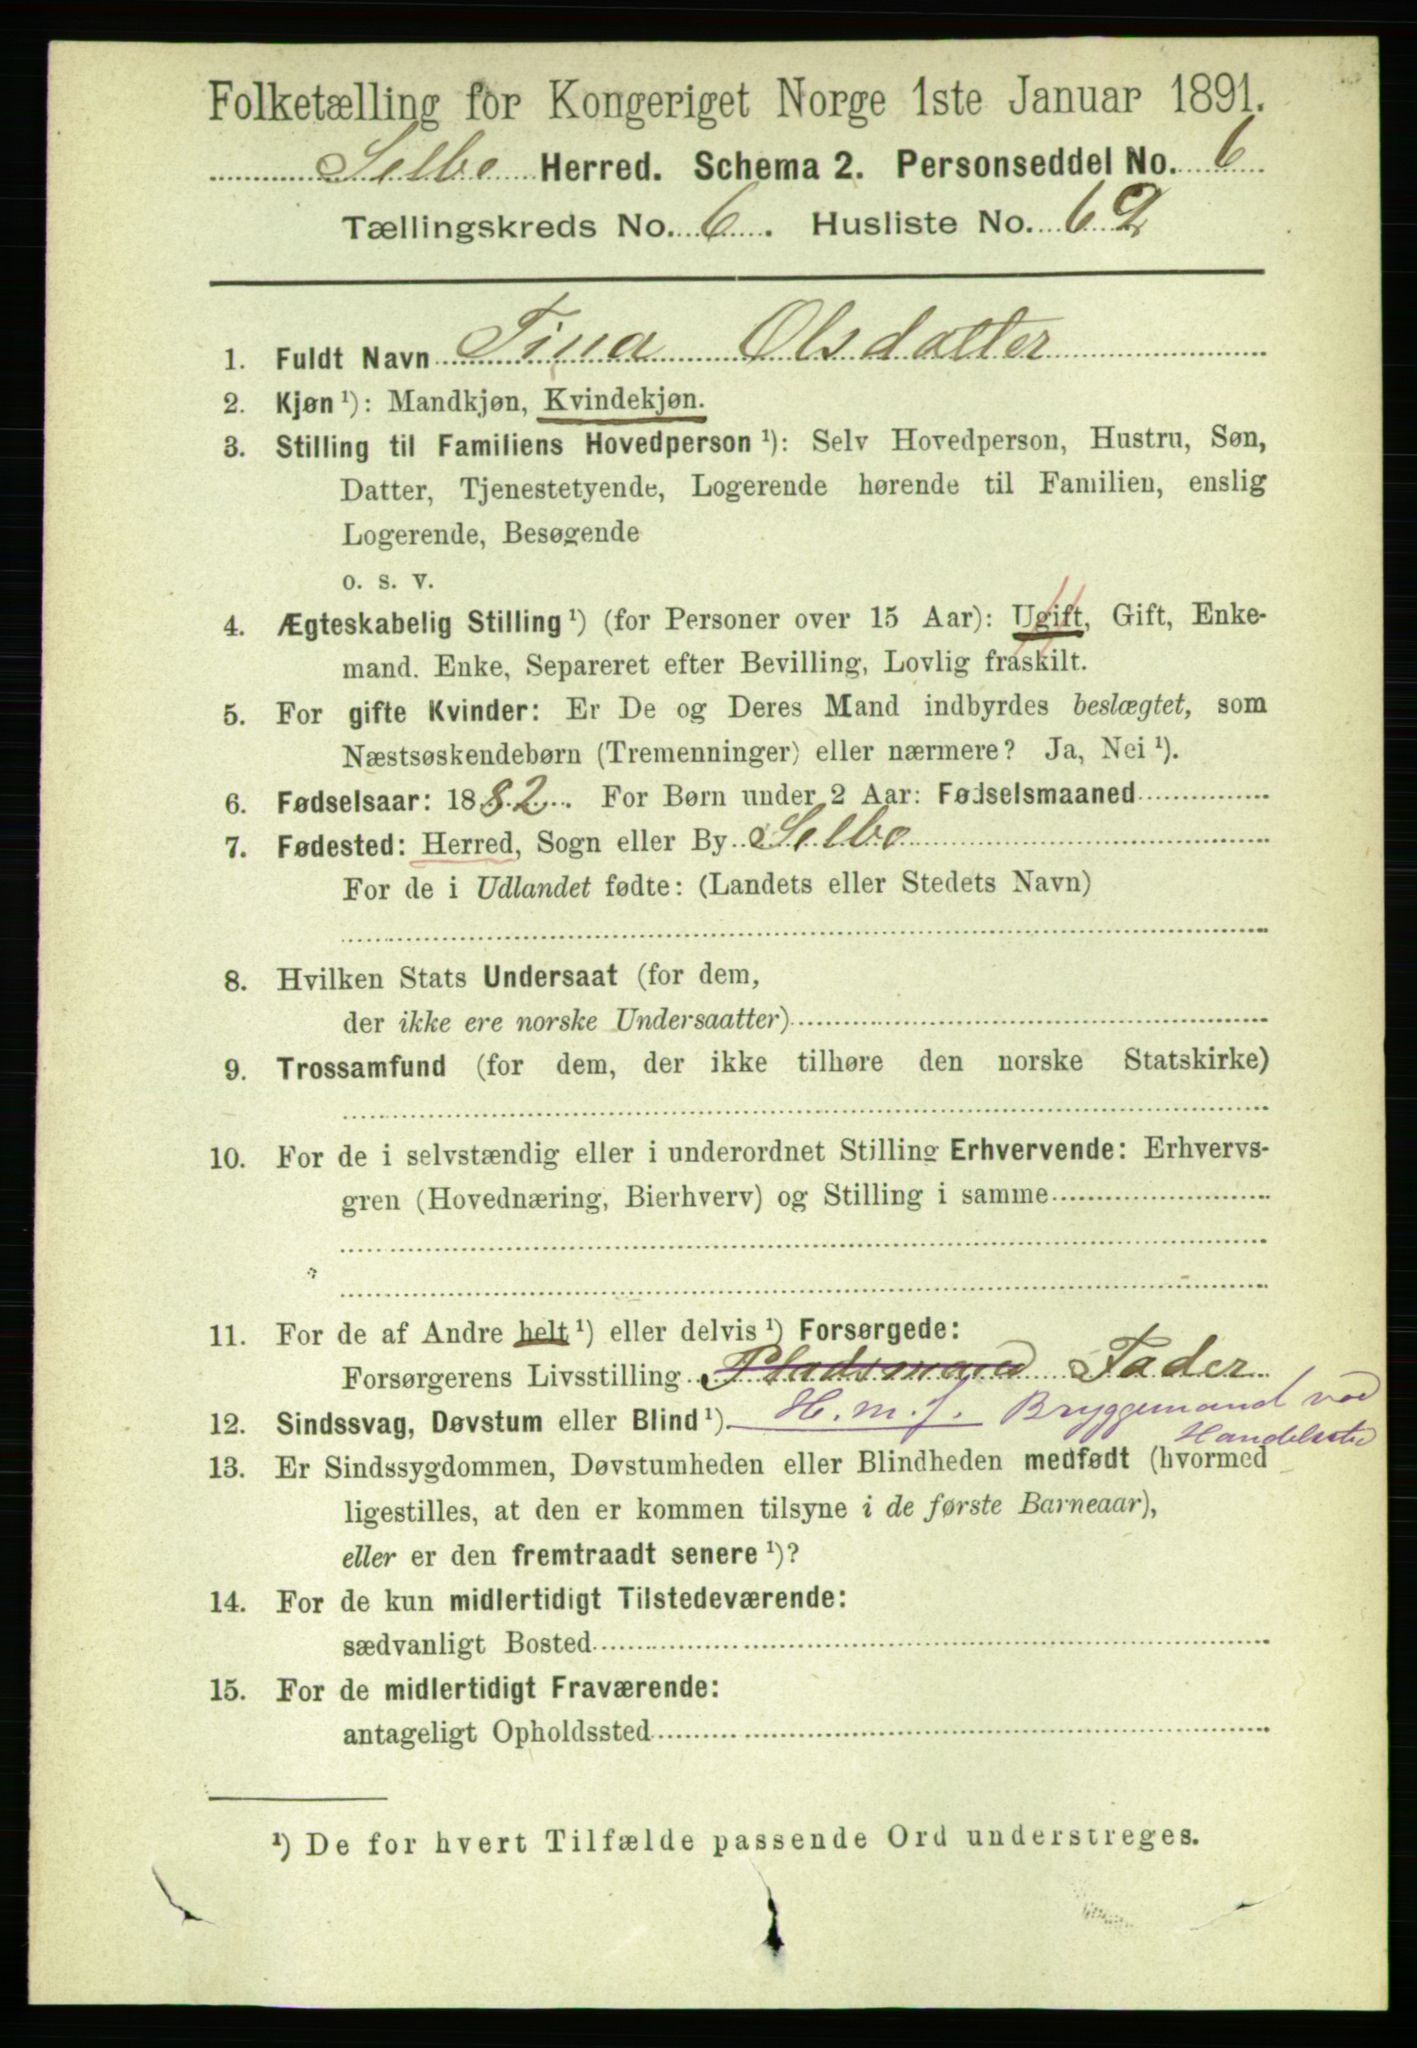 Folketælling for Kongeriget Norge 1ste Januar 1891.
Selbo Herred. Schema 2. Personseddel No. 6
Tællingskreds No. 6. Husliste No. 62
1. Fuldt Navn Tina Olsdatter
2. Kjøn ¹): Mandkjøn, Kvindekjøn.
3. Stilling til Familiens Hovedperson ¹): Selv Hovedperson, Hustru, Søn,
Datter, Tjenestetyende, Logerende hørende til Familien, enslig
Logerende, Besøgende
o. s. v.
4. Ægteskabelig Stilling ¹) (for Personer over 15 Aar): Ugift, Gift, Enke-
mand. Enke, Separeret efter Bevilling, Lovlig fraskilt.
5. For gifte Kvinder: Er De og Deres Mand indbyrdes beslægtet, som
Næstsøskendebørn (Tremenninger) eller nærmere? Ja, Nei ¹).
6. Fødselsaar: 1882. For Børn under 2 Aar: Fødselsmaaned
7. Fødested: Herred, Sogn eller By Selbo
For de i Udlandet fødte: (Landets eller Stedets Navn)
8. Hvilken Stats Undersaat (for dem,
der ikke ere norske Undersaatter)
9. Trossamfund (for dem, der ikke tilhøre den norske Statskirke)
10. For de i selvstændig eller i underordnet Stilling Erhvervende: Erhvervs-
gren (Hovednæring, Bierhverv) og Stilling i samme
11. For de af Andre helt ¹) eller delvis ¹) Forsørgede:
Forsørgerens Livsstilling Pladsmand Fader
12. Sindssvag, Døvstum eller Blind ¹). H. m. f. Bryggemand ved
Handelssted
13. Er Sindssygdommen, Døvstumheden eller Blindheden medfødt (hvormed
ligestilles, at den er kommen tilsyne i de første Barneaar),
eller er den fremtraadt senere ¹)?
14. For de kun midlertidigt Tilstedeværende:
sædvanligt Bosted
15. For de midlertidigt Fraværende:
antageligt Opholdssted
¹) De for hvert Tilfælde passende Ord understreges.